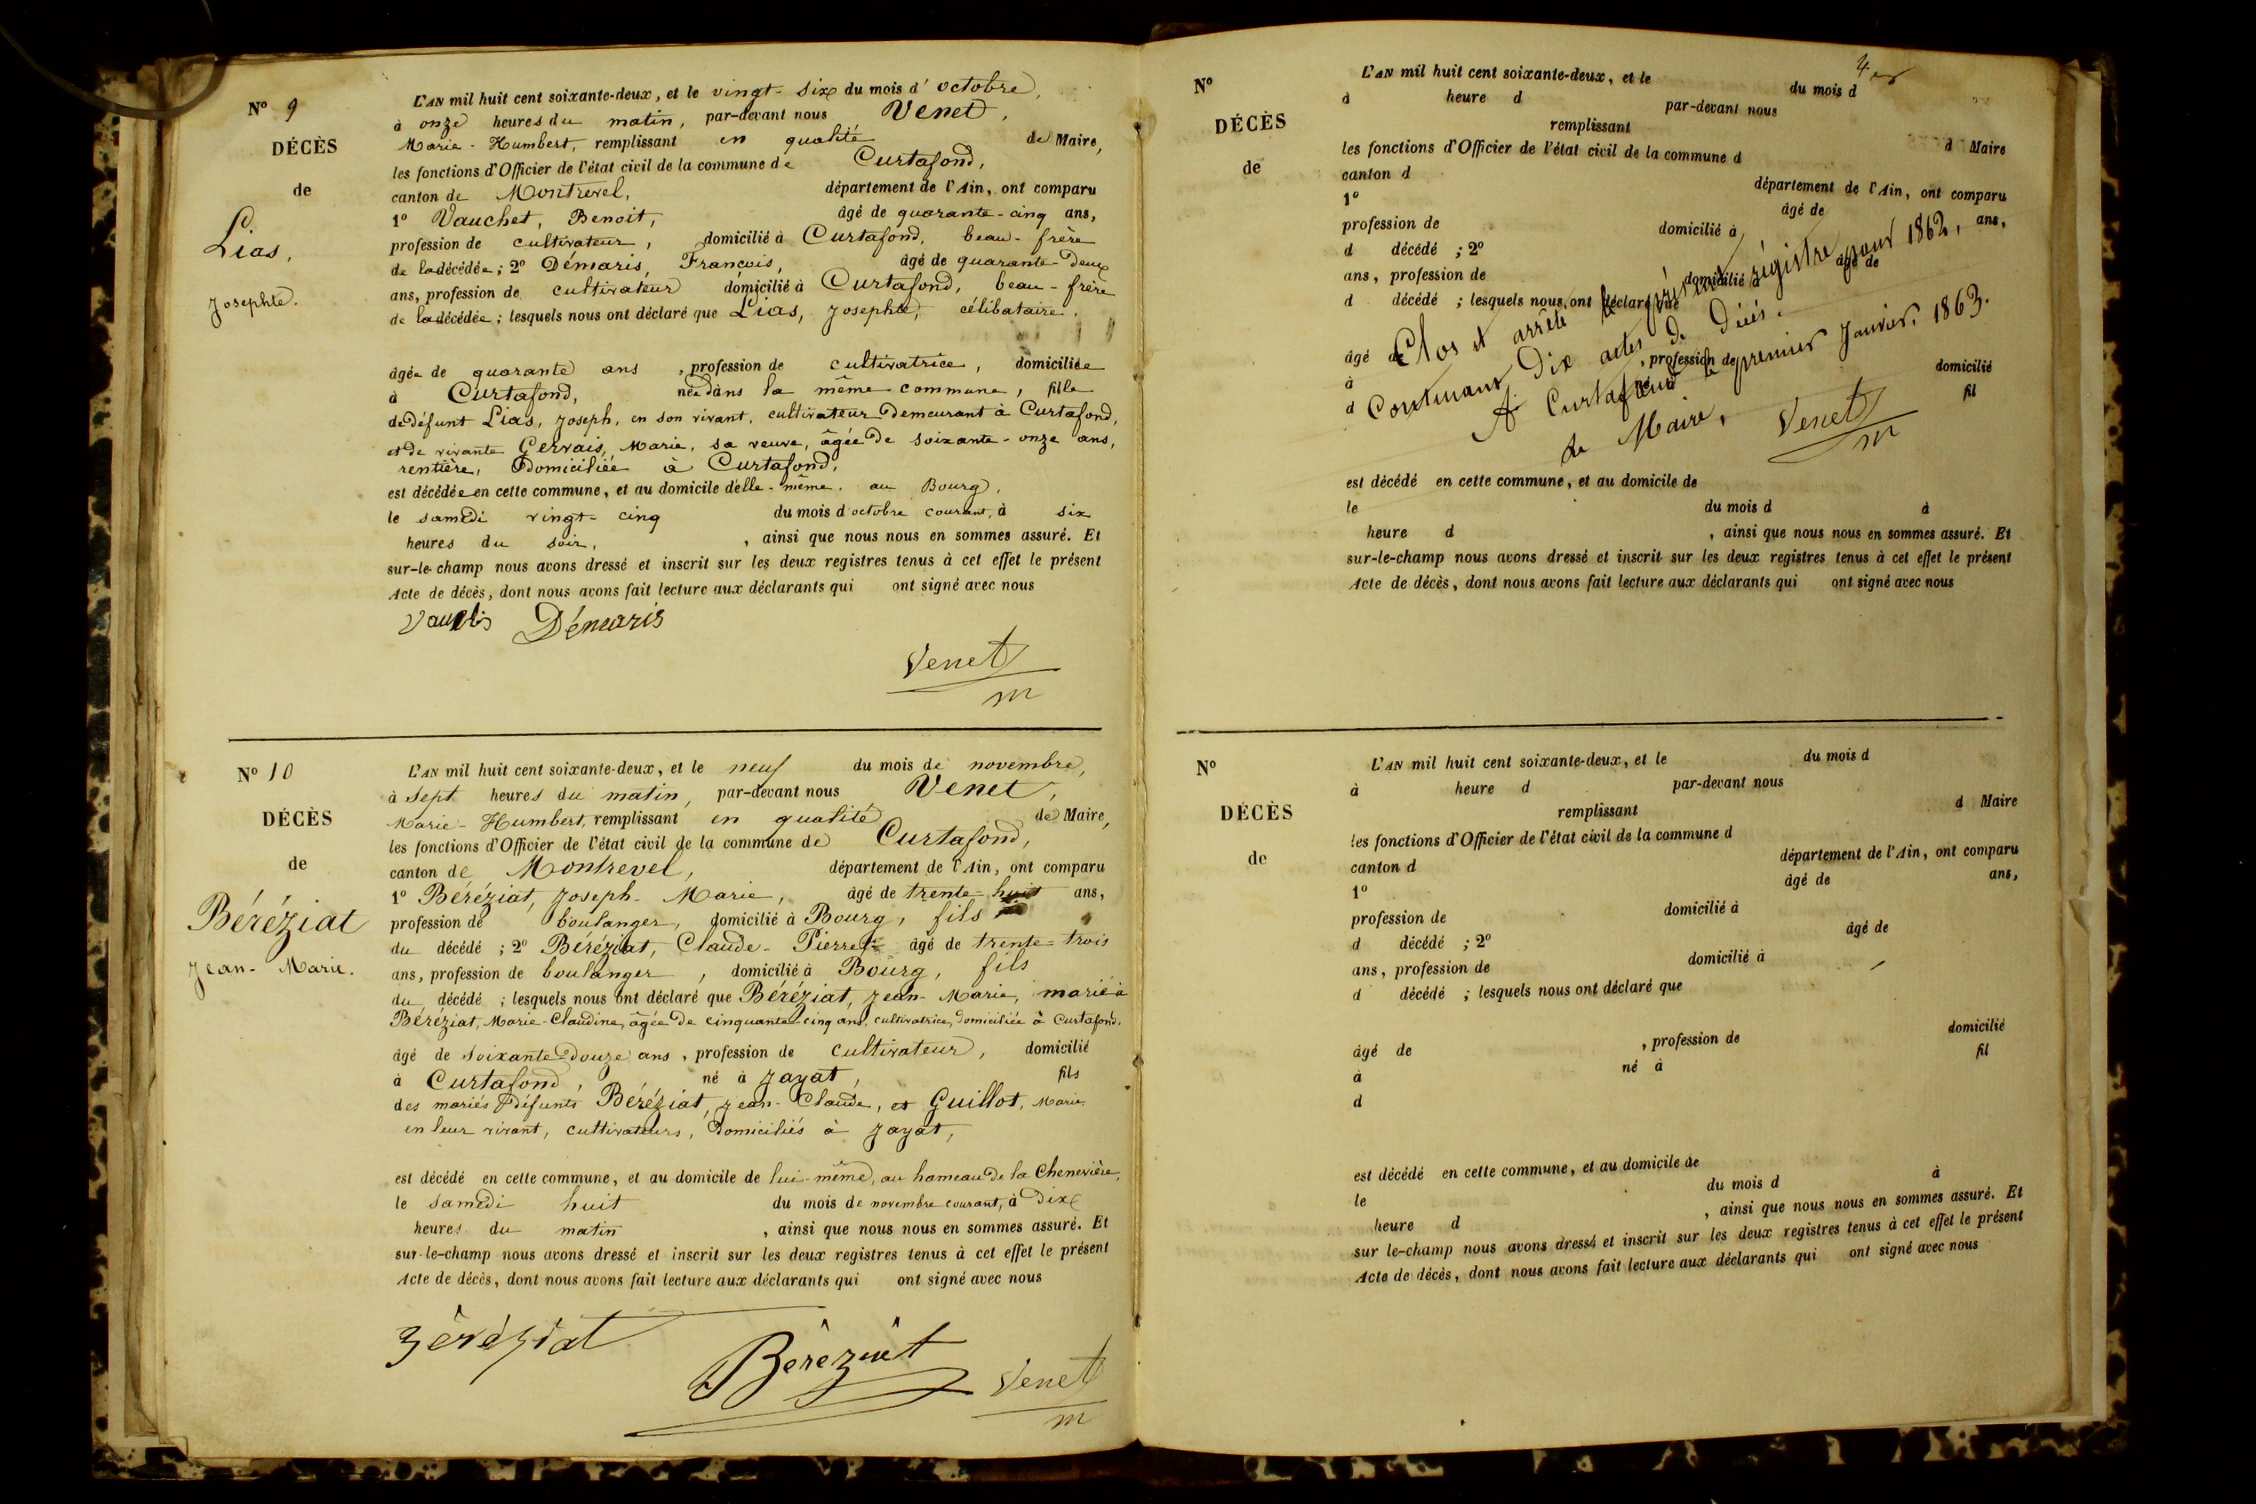 N° 9
DÉCÈS
de
Lias,
Josephte.
L'AN mil huit cent soixante-deux, et le vingt-six du mois d'octobre,
à onze heures du matin, par-devant nous Venet,
Marie-Humbert, remplissant en qualité de Maire,
les fonctions d'Officier de l'état civil de la commune de Curtafond,
canton de Montrevel, département de l'Ain, ont comparu
1° Vauchet, Benoit, âgé de quarante-cinq ans,
profession de cultivateur, domicilié à Curtafond, beau-frère
de la décédée ; 2° Démaris, François, âgé de quarante-deux
ans, profession de cultivateur domicilié à Curtafond, beau-frère
de la décédée ; lesquels nous ont déclaré que Lias, Josephte, célibataire,
âgée de quarante ans, profession de cultivatrice, domiciliée
à Curtafond, née dans la même commune, fille
de défunt Lias, Joseph, en son vivant, cultivateur demeurant à Curtafond,
et de vivante Gervais, Marie, sa veuve, âgée de soixante-onze ans,
rentière, domiciliée à Curtafond,
est décédée en cette commune, et au domicile d'elle-même, au Bourg,
le samedi vingt-cinq du mois d'octobre courant, à six
heures du soir, , ainsi que nous nous en sommes assuré. Et
sur-le-champ nous avons dressé et inscrit sur les deux registres tenus à cet effet le présent
Acte de décès, dont nous avons fait lecture aux déclarants qui ont signé avec nous
Démaris
Venet
m
N° 10
DÉCÈS
de
Béréziat
Jean-Marie.
L'AN mil huit cent soixante-deux, et le neuf du mois de novembre,
à sept heures du matin, par-devant nous Venet,
Marie-Humbert, remplissant en qualité de Maire,
les fonctions d'Officier de l'état civil de la commune de Curtafond,
canton de Montrevel, département de l'Ain, ont comparu
1° Béréziat, Joseph-Marie, âgé de trente-huit ans,
profession de boulanger, domicilié à Bourg, fils
du décédé ; 2° Béréziat, Claude-Pierre âgé de trente-trois
ans, profession de boulanger, domicilié à Bourg, fils
du décédé ; lesquels nous ont déclaré que Béréziat, Jean-Marie, marié à
Béréziat, Marie-Claudine, âgée de cinquante-cinq ans, cultivatrice, domiciliée à Curtafond,
âgé de soixante-douze ans, profession de cultivateur, domicilié
à Curtafond, né à Jayat, fils
des mariés défunts Béréziat, Jean-Claude, et Guillot, Marie
en leur vivant, cultivateurs, domiciliés à Jayat,
est décédé en cette commune, et au domicile de lui-même, au hameau de la Chenevière,
le samedi huit du mois de novembre courant, à dix
heures du matin , ainsi que nous nous en sommes assuré. Et
sur-le-champ nous avons dressé et inscrit sur les deux registres tenus à cet effet le présent
Acte de décès, dont nous avons fait lecture aux déclarants qui ont signé avec nous
Béréziat
Béréziat
Venet
m
N°
DÉCÈS
de
L'AN mil huit cent soixante-deux, et le du mois d
à heure d par-devant nous
remplissant d Maire
les fonctions d'Officier de l'état civil de la commune d
canton d département de l'Ain, ont comparu
1° âgé de ans,
profession de domicilié à
d décédé ; 2° âgé de
ans, profession de domicilié à
d décédé ; lesquels nous ont déclaré que
âgé de , profession de domicilié
à né à fil
d
Clos et arrêté le présent régistre pour 1862,
Contenant Dix actes de Décès.
A Curtafond le premier Janvier 1863.
Le Maire,
Venet
m
est décédé en cette commune, et au domicile de
le du mois d à
heure d , ainsi que nous nous en sommes assuré. Et
sur-le-champ nous avons dressé et inscrit sur les deux registres tenus à cet effet le présent
Acte de décès, dont nous avons fait lecture aux déclarants qui ont signé avec nous
N°
DÉCÈS
de
L'AN mil huit cent soixante-deux, et le du mois d
à heure d par-devant nous
remplissant d Maire
les fonctions d'Officier de l'état civil de la commune d
canton d département de l'Ain, ont comparu
1° âgé de ans,
profession de domicilié à
d décédé ; 2° âgé de
ans, profession de domicilié à
d décédé ; lesquels nous ont déclaré que
âgé de , profession de domicilié
à né à fil
d
est décédé en cette commune, et au domicile de
le du mois d à
heure d , ainsi que nous nous en sommes assuré. Et
sur le-champ nous avons dressé et inscrit sur les deux registres tenus à cet effet le présent
Acte de décès, dont nous avons fait lecture aux déclarants qui ont signé avec nous